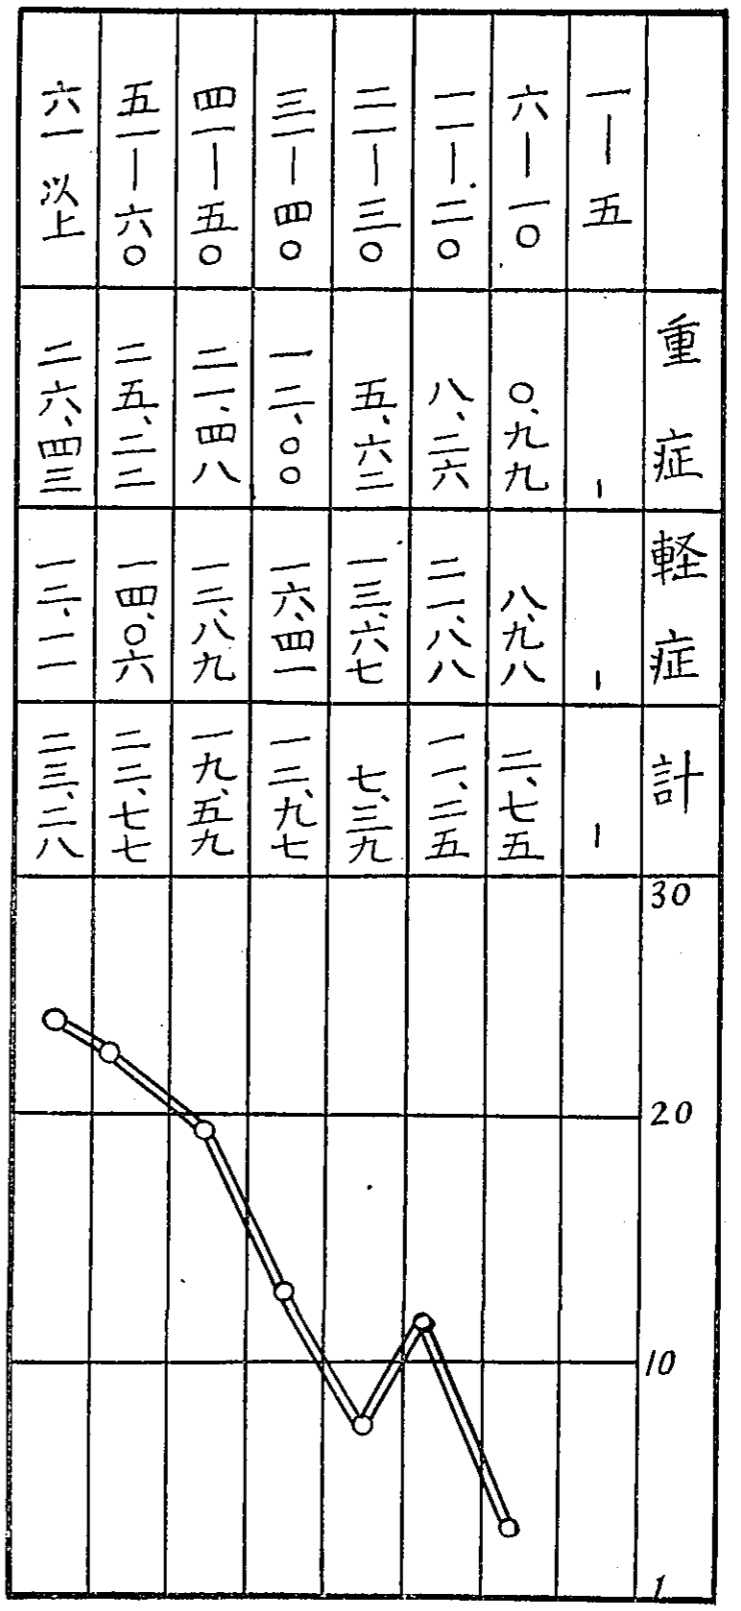 重症
軽症
計
30
20
10
1
一―五
-
-
-
六―一〇
〇、九九
八、九八
二、七五
一一―二〇
八、二六
二一、八八
一一、二五
二一―三〇
五、六二
一三、六七
七、三九
三一―四〇
一二、〇〇
一六、四一
一二、九七
四一―五〇
二一、四八
一二、八九
一九、五九
五一―六〇
二五、二二
一四、〇六
二二、七七
六一以上
二六、四三
一二、一一
二三、二八